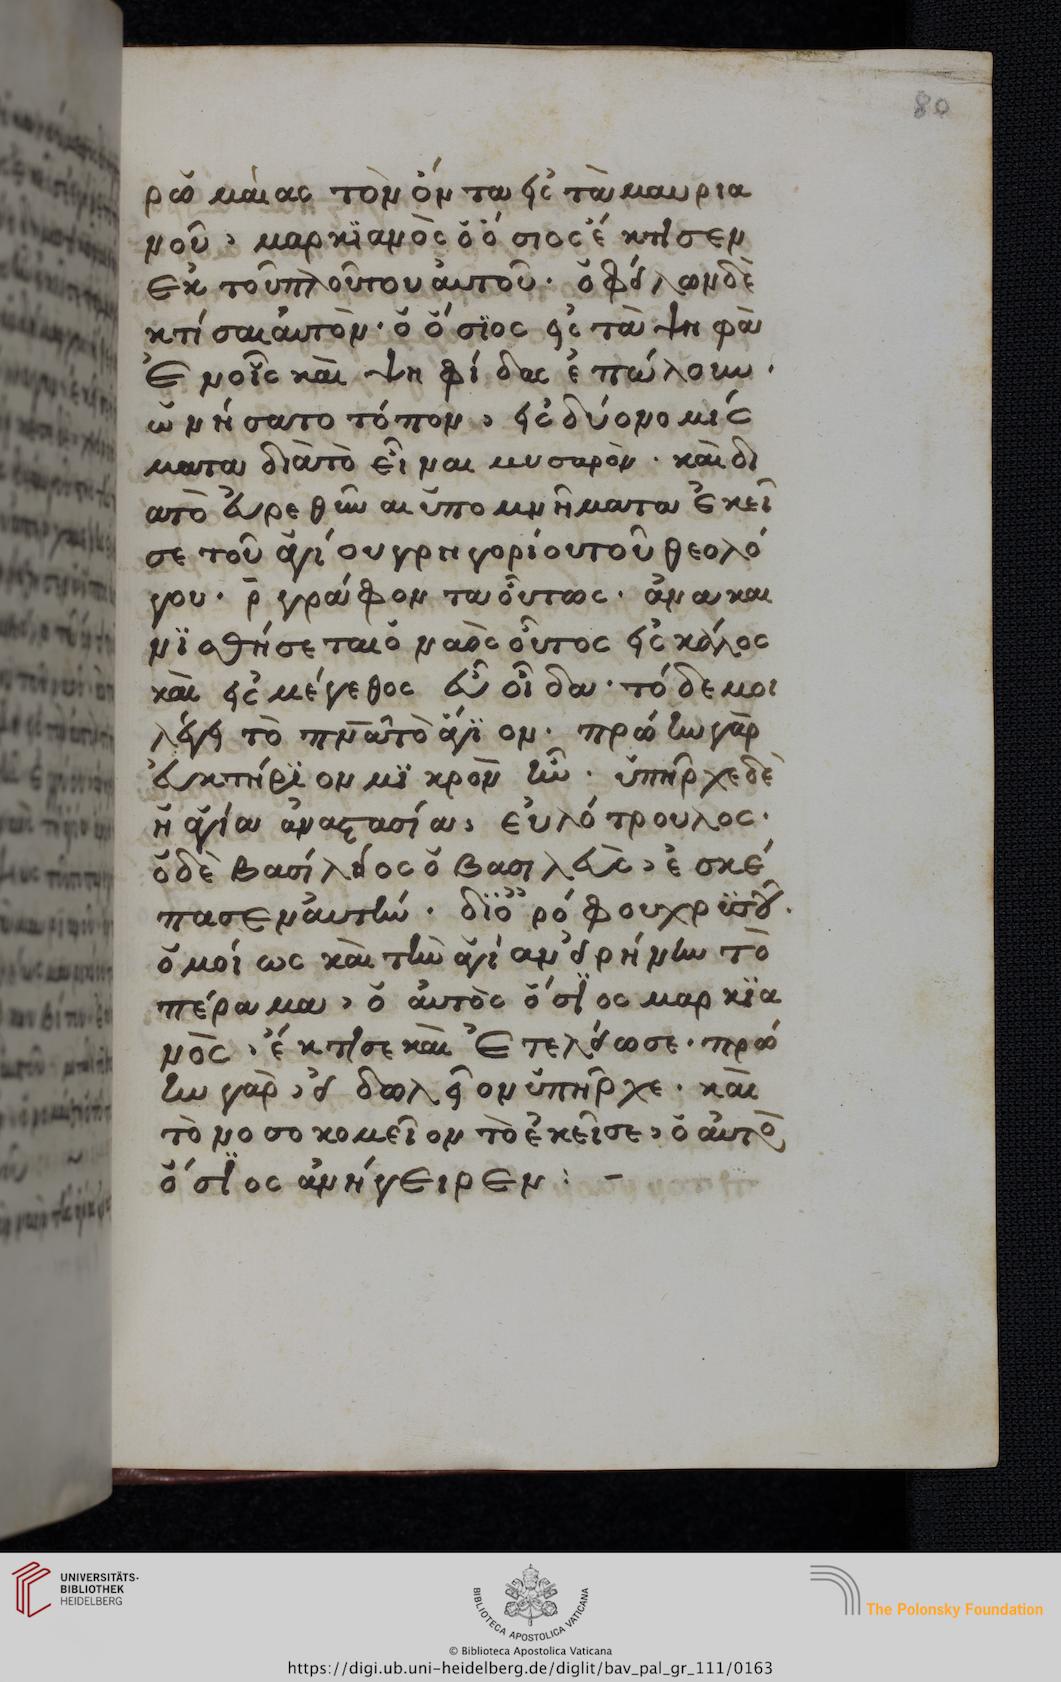 80
ρωμαίας τὸν ὄντα εἰς τὰ μαυρια
νοῦ, μαρκϊανὸς ὁ ὅσιος ἔκτισεν
ἐκ τοῦ πλούτου αὐτοῦ· ὀφείλων δὲ
κτίσαι αὐτὸν· ὁ ὅσϊος εἰς τὰ ψηφὰ
ἐν οἷς καὶ ψηφίδας ἐπώλουν,
ὠνήσατο τόπον, εἰς δύο νομίσ
ματα διὰ τὸ εἶναι μυσαρὸν· καὶ δι
ατὸ εὑρεθῆναι ὑπομνήματα ἐκεῖ
σε τοῦ ἁγίου γρηγορίου τοῦ θεολό
γου· γράφοντα οὕτως· ἀνακαι
νϊσθήσεται ὁ ναὸς οὗτος εἰς κάλος
καὶ εἰς μέγεθος εὖ οἶδα· τόδε μοι
λέγει τὸ πνα τὸ ἅγϊον· πρώην γὰρ
εὐκτήρϊον μϊκρὸν ἦν· ὑπῆρχε δὲ
ἡ ἁγία ἀναστασία, ξυλότρουλος·
ὁ δὲ βασίλειος ὁ βασιλεὺς, ἐσκέ
πασεν αὐτὴν· δϊ ὀρόφου χρϋσοῦ.
ὁμοίως καὶ τὴν ἁγίαν εἰρήνην τὸ
πέραμα, ὁ αὐτὸς ὅσϊος μαρκϊα
νὸς, ἔκτισε καὶ ἐτελείωσε· πρώ
ην γὰρ, εἰδωλεῖον ὑπῆρχε· καὶ
τὸ νοσοκομεῖον τὸ ἐκεῖσε, ὁ αὐτὸς
ὅσϊος ἀνήγειρεν : –
UNIVERSITÄTS-
BIBLIOTHEK
HEIDELBERG
BIBLIOTECA APOSTOLICA VATICANA
© Biblioteca Apostolica Vaticana
The Polonsky Foundation
https://digi.ub.uni-heidelberg.de/diglit/bav_pal_gr_111/0163